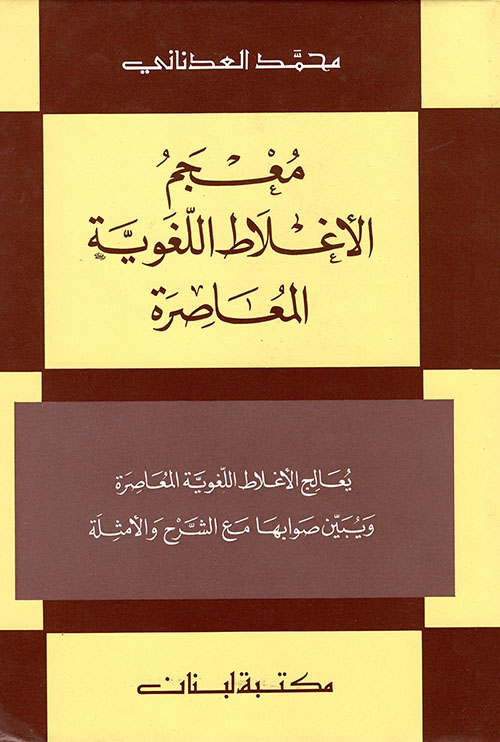 محمّد العدناني
مُعْجَمُ
الأغْلَاط اللّغَويَّة
المُعَاصِرَة
يُعَالج الأغلاط اللّغويَّة المُعَاصِرَة
وَيُبَيّن صَوابهَا مَع الشَّرْح وَالأمثِلَة
مكتبة لبنان